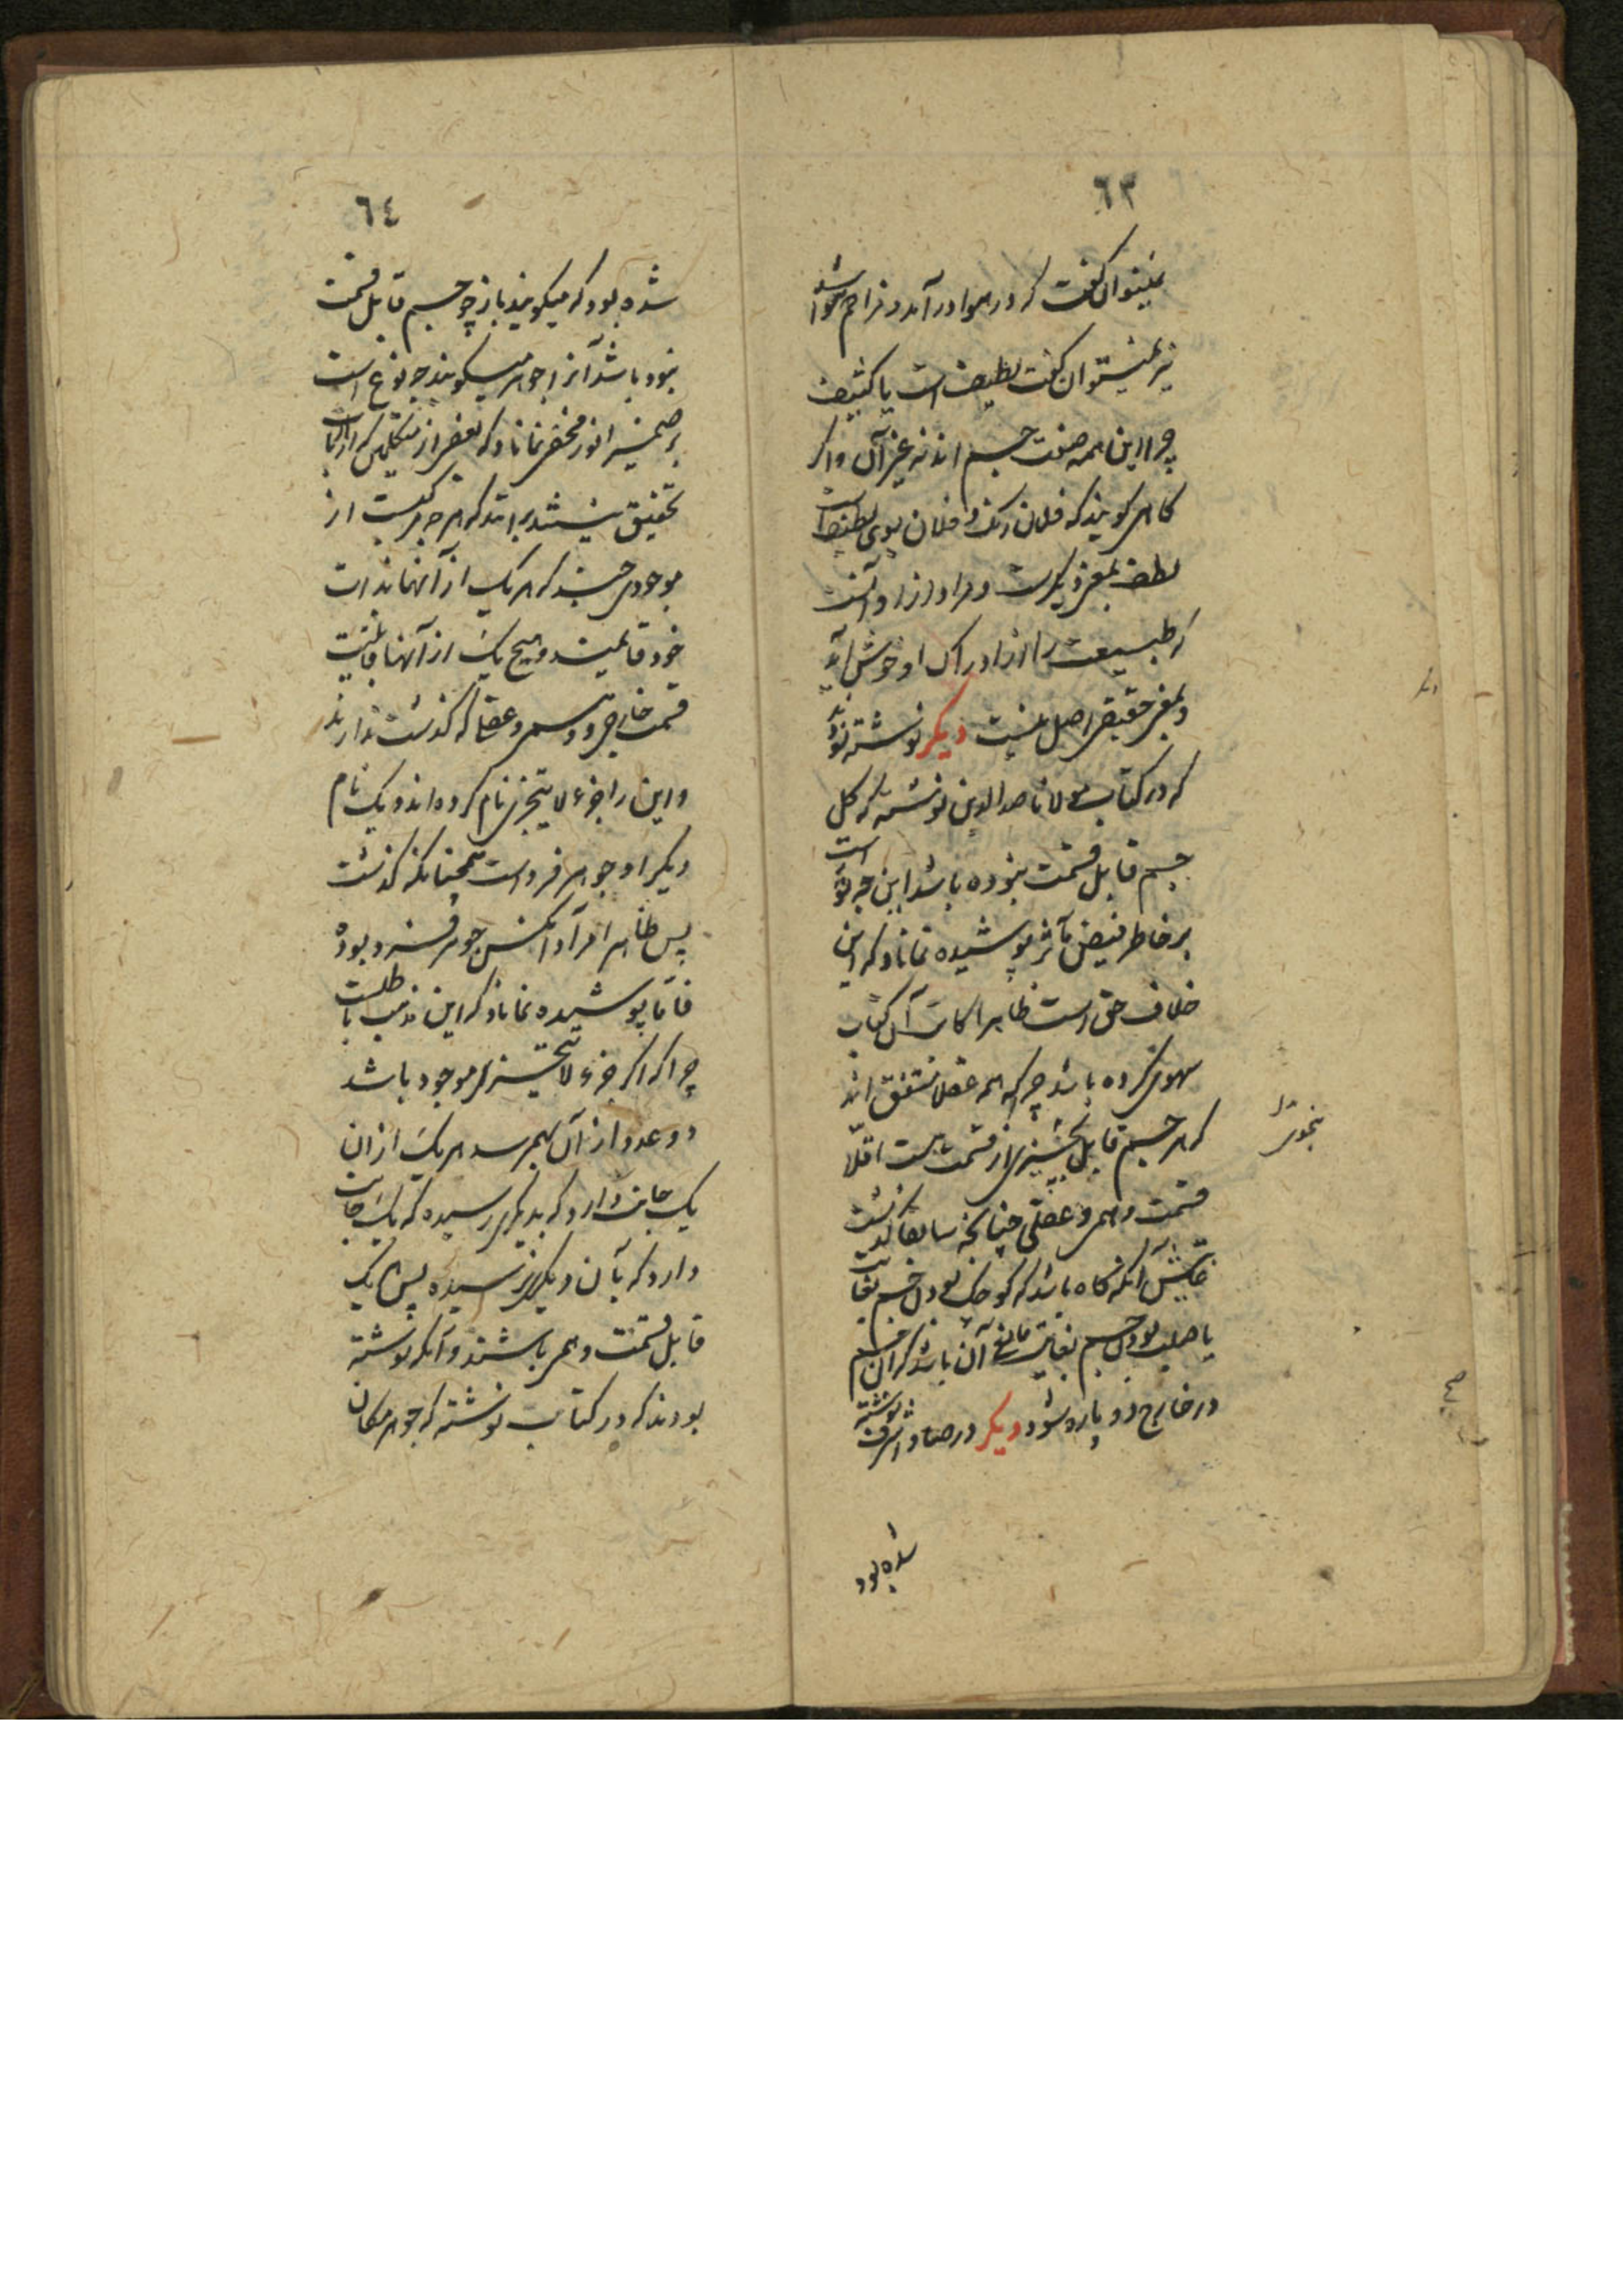 ٦٣
نمیتوان کفت که در هوا درآمد و مزاحم هوا شد
نیز نمیتوان کفت لطیف است یا کثیف
چرا این همه صفت جسم اند نه غیر آن و اکر
کاهی کویند که فلان رنک و فلان بوی لطیف است
لطف بمعنی دیکرست و مراد ازو آنست
که طبیعت را از ادراک او خوش آید
و بمعنی حقیقی اصل نیست دیکر نوشته بودند
که در کتاب مولانا صدرالدین نوشته که کل
جسم قابل قسمت نبوده باشد این چه نوع است
بر خاطر فیض مآثر پوشیده نماناد که این
خلاف حق است ظاهرا کاتب آن کتاب
سهوی کرده باشد چرا که همه عقلا متفق اند
که هر جسم قابل بخشیزی از قسمت هست اقلا
بنحوی
قسمت وهمی و عقلی چنانچه سابقا کذشت
غایتش آنکه کاه باشد که کوچک بودن جسم بغایت
یا صلب بودن جسم بغایت مانع آن باشد که آن جسم
در خارج دو پاره شود دیکر در صفاد اشرف نوشته
شده بود
٦٤
شده بود که میکویند باز چو جسم قابل قسمت
نبود باشد آنرا جوهر میکویند چه نوع است
بر ضمیر انور مخفی نماناد که بعضی از متکلمین که از ارباب
تحقیق نیستند برانند که هر جسم مرکبست از
موجودی چند که هر یک از آنها بذات
خود قائمند و هیچ یک از آنها قابلیت
قسمت خارجی و وهمی و عقلی که کذشت ندارند
و این را جزء لا یتجزی نام کرده اند و یک نام
دیکر او جوهر فرد است همچنانکه کذشت
پس ظاهرا مراد آنکس جوهر فرد بوده
فاما پوشیده نماناد که این مذهب باطلست
چرا که اکر جزء لا یتجزی موجود باشد
دو عدد از آن بهم رسد هر یک از ان
یک جانب دارد که بدیکری رسیده که یک جانب
دارد که بآن دیکری نرسیده پس هر یک
قابل قسمت وهمی باشند و آنکه نوشته
بودند که در کتاب نوشته که جوهر مکان